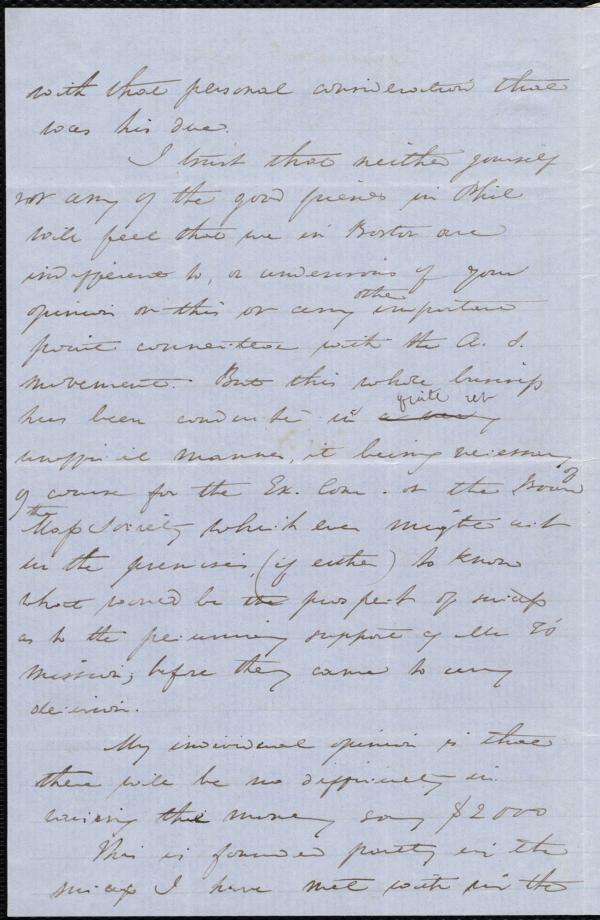 with that personal consideration that
was his due.
I trust that neither yourself
nor any of the good friends in Phil
will feel that we in Boston are
indifferent to, or undesirous of your
opinion on this or any other important
point connected with the A. S.
movement. But this whole business
has been conducted in quite
unofficial manner, it being necessary
of course for the Ex. Com. or the Board of
the Mass Society whichever might act
in the premises, (if either) to know
what would be the prospect of success
as to the pecuniary support of
mission, before they came to any
decision.
My individual opinion is that
there will be no difficulty in
raising the money say $2000
This is founded partly in the
success I have met with in the